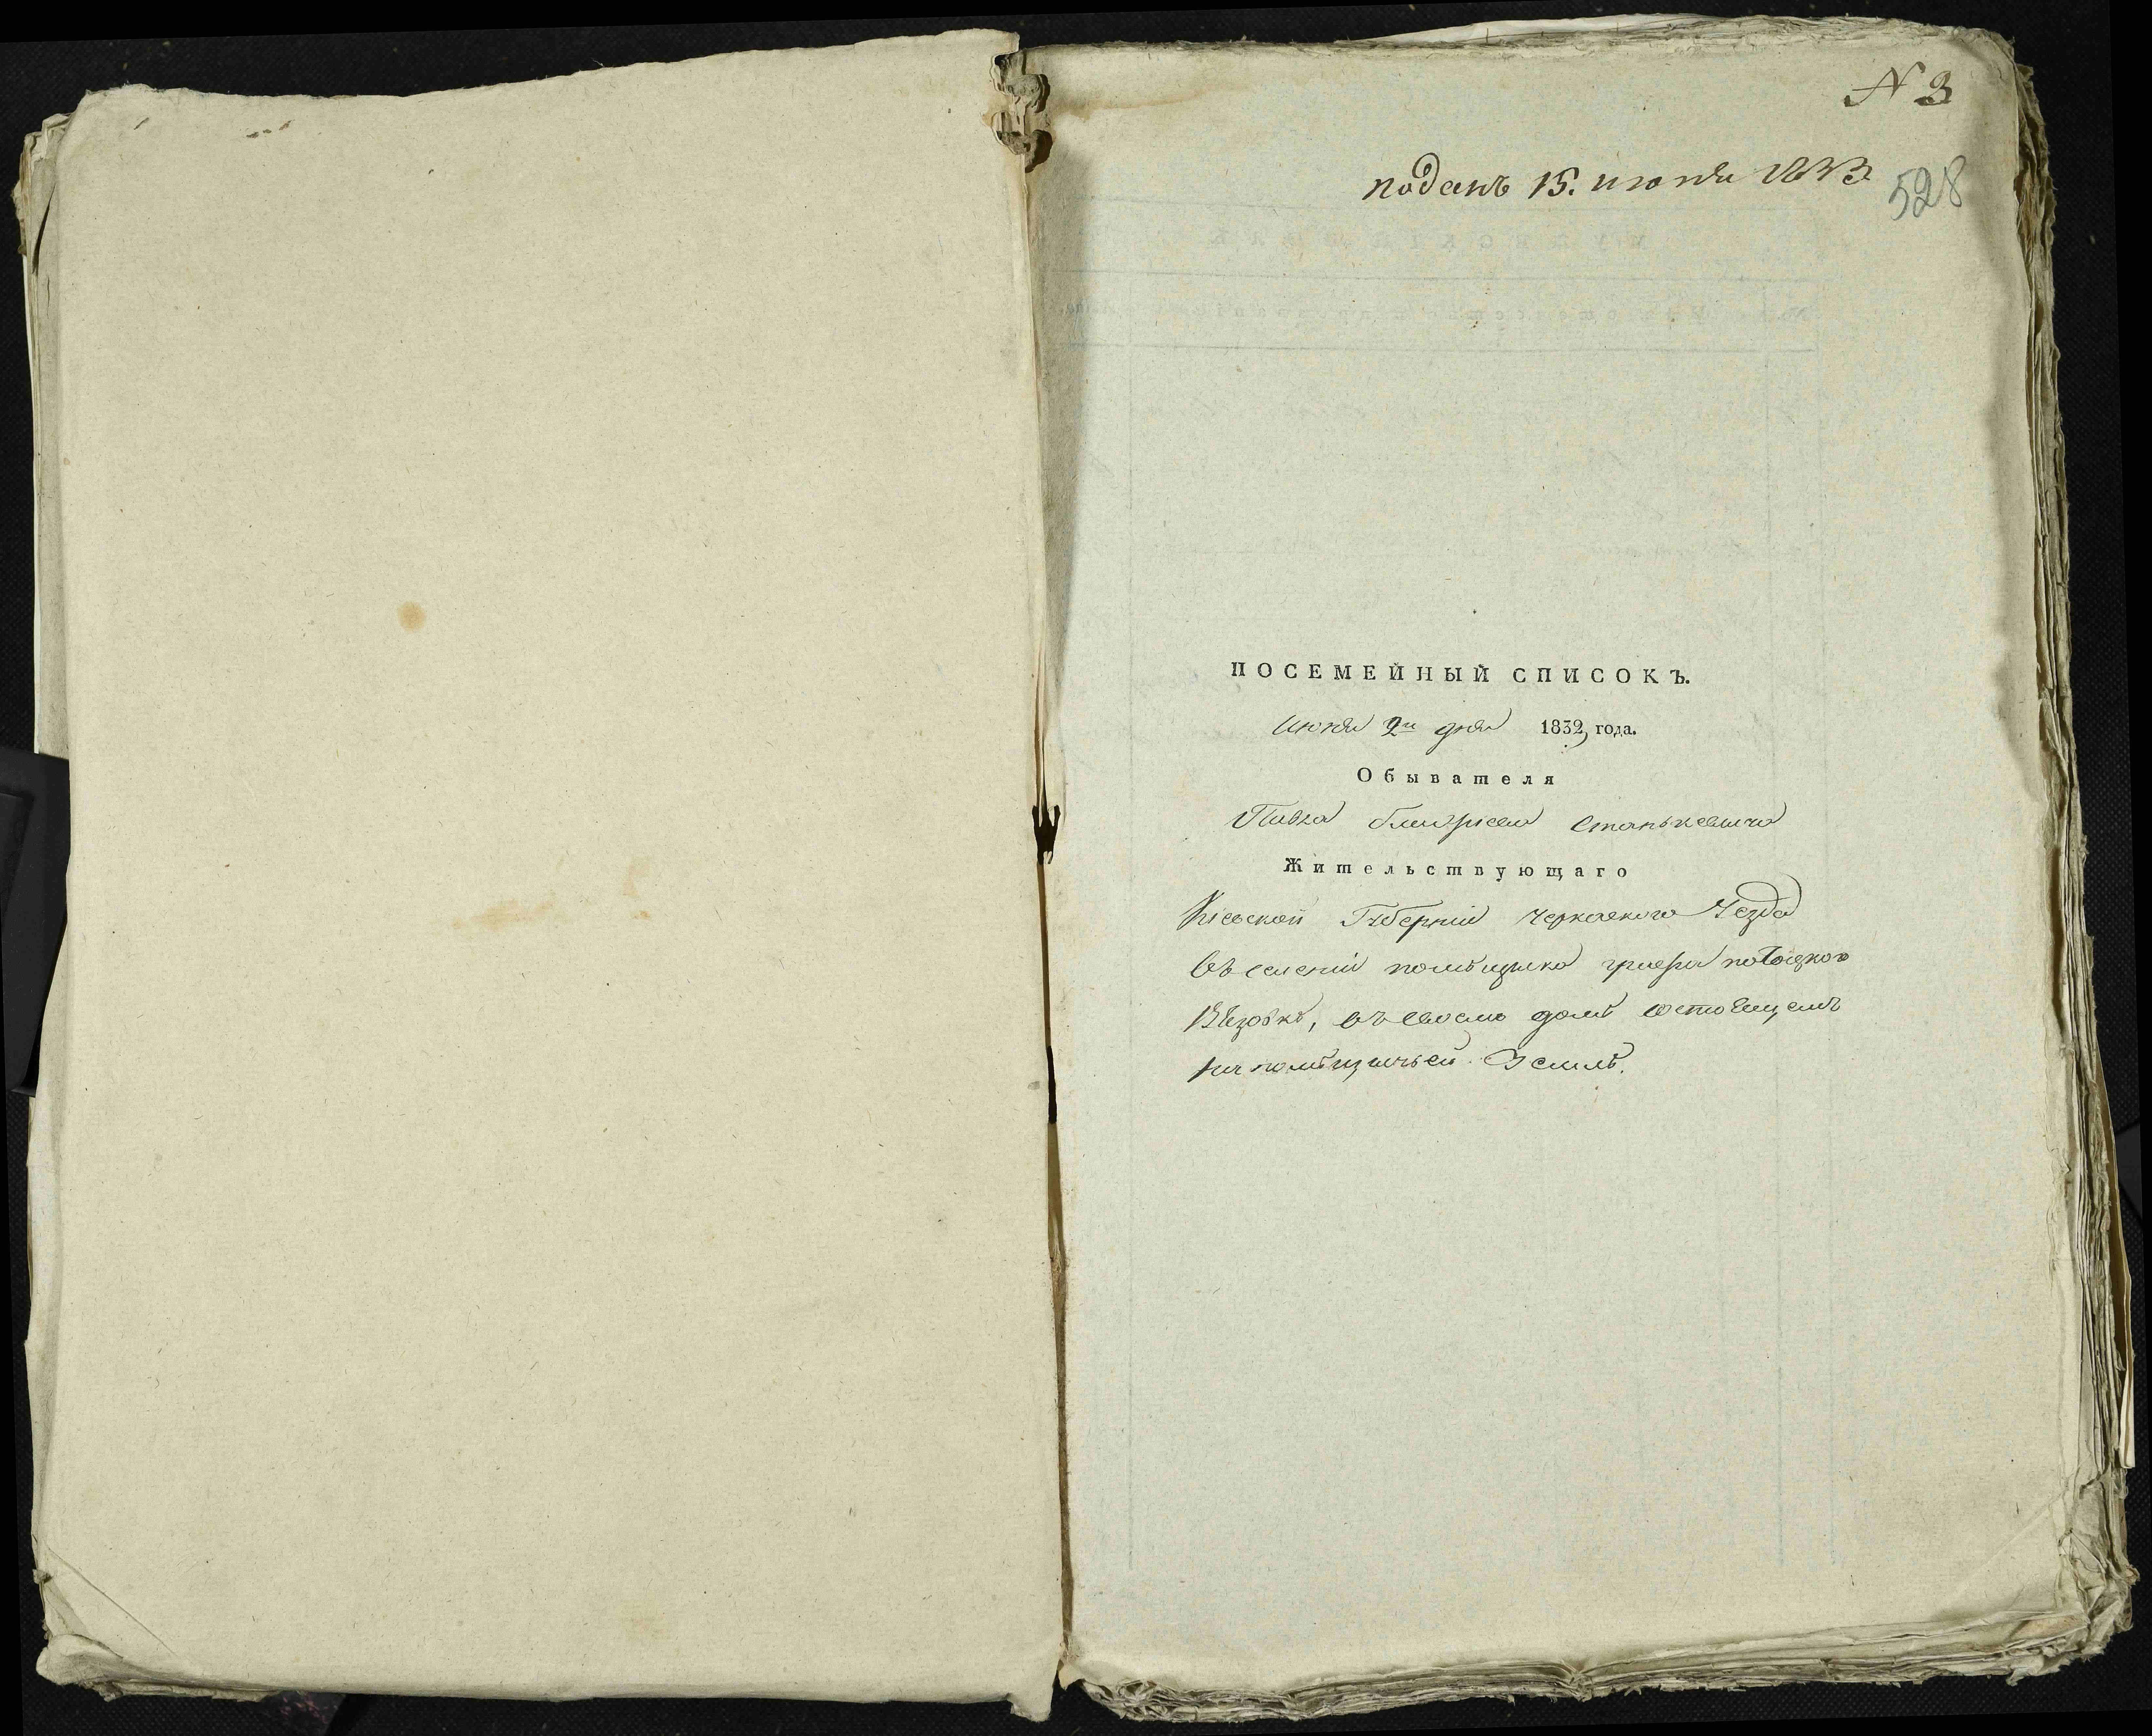 N 3
поданъ 15. июня 1833
528
ПОСЕМЕЙНЫЙ СПИСОКЪ.
Июня 2го дня 1832, года.
Обывателя
Станькевича
Жительствующаго
Кіевской Губерніи Черкаского Уезда
Въ селеніи помѣщика графа потоцкого
въ своемъ домѣ состоящемъ
на помѣщичьей Землѣ.